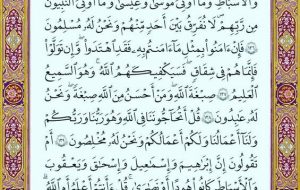 وَالْأَسْبَاطِ وَمَا أُوتِيَ مُوسَىٰ وَعِيسَىٰ وَمَا أُوتِيَ النَّبِيُّونَ
مِن رَّبِّهِمْ لَا نُفَرِّقُ بَيْنَ أَحَدٍ مِّنْهُمْ وَنَحْنُ لَهُ مُسْلِمُونَ
فَإِنْ ءَامَنُوا بِمِثْلِ مَا ءَامَنتُم بِهِ فَقَدِ اهْتَدَوا وَّإِن تَوَلَّوْا
فَإِنَّمَا هُمْ فِي شِقَاقٍ فَسَيَكْفِيكَهُمُ اللَّهُ وَهُوَ السَّمِيعُ
الْعَلِيمُ صِبْغَةَ اللَّهِ وَمَنْ أَحْسَنُ مِنَ اللَّهِ صِبْغَةً وَنَحْنُ
لَهُ عَابِدُونَ قُلْ أَتُحَاجُّونَنَا فِي اللَّهِ وَهُوَ رَبُّنَا وَرَبُّكُمْ
وَلَنَا أَعْمَالُنَا وَلَكُمْ أَعْمَالُكُمْ وَنَحْنُ لَهُ مُخْلِصُونَ أَمْ
تَقُولُونَ إِنَّ إِبْرَاهِيمَ وَإِسْمَاعِيلَ وَإِسْحَاقَ وَيَعْقُوبَ
وَالْأَسْبَاطَ كَانُوا هُودًا أَوْ نَصَارَىٰ قُلْ ءَأَنتُمْ أَعْلَمُ أَمِ اللَّهُ